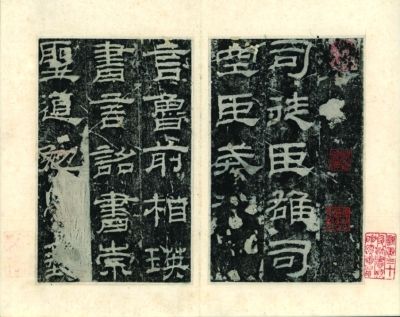 司徒臣雄司
空臣戒稽
言魯前相瑛
書言詔書崇
聖道勉